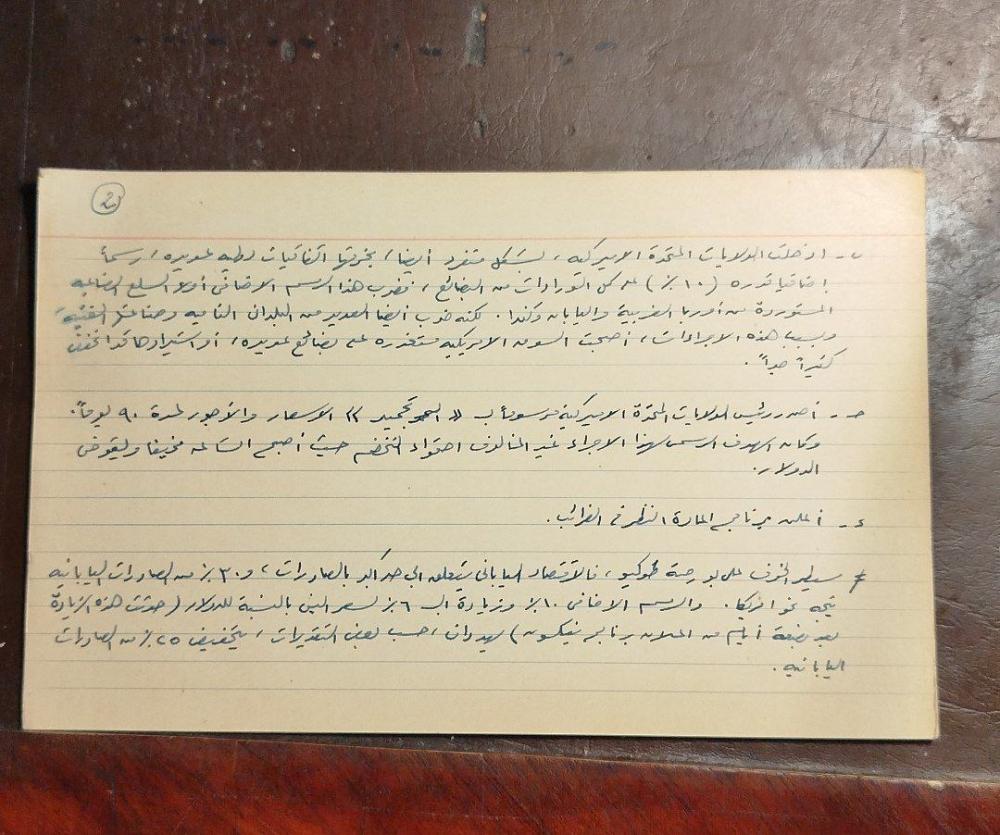 2
ب - ادخلت الولايات المتحدة الاميركية، بشكل منفرد أيضا، بخرقها اتفاقيات دولية عديدة، رسماً
إضافيا قدره (١٠٪) على كل الواردات من البضائع، فضرب هذا الرسم الاضافي أولا السلع الصناعية
المستوردة من أوربا الغربية واليابان وكندا. لكنه ضرب أيضا العديد من البلدان النامية وصناعتها الفتية
وبسبب هذه الاجراءات، أصبحت السوق الامريكية متعذرة على بضائع عديدة، أو استيرادها قد انخفض
كثيراً جداً.
ح - أصدر رئيس الولايات المتحدة الاميركية مرسوماً بـ «تجميد» الاسعار والأجور لمدة ٩٠ يوماً.
وكان الهدف الرسمي لهذا الاجراء غير المألوف احتواء التضخم حيث أصبح اتساعه مخيفا ويقوض
الدولار.
د - أعلن برنامج اعادة النظر في الضرائب.
سيطر الخوف على بورصة طوكيو، فالاقتصاد الياباني يتعلق الى حد كبير بالصادرات، و٣٠٪ من الصادرات اليابانية
يتجه نحو امريكا. والرسم الاضافي ١٠٪ وزيادة الـ ٦٪ لسعر الين بالنسبة للدولار (حدثت هذه الزيادة
بعد بضعة أيام من اعلان برنامج نيكسون) يهددان، حسب بعض التقديرات، بتخفيض ٢٥٪ من الصادرات
اليابانيه.